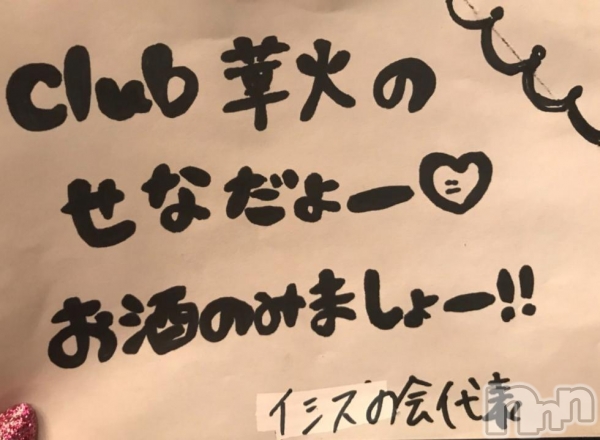 club 華火の
せなだよー♡
お酒のみましょー!!
イシズの会代表